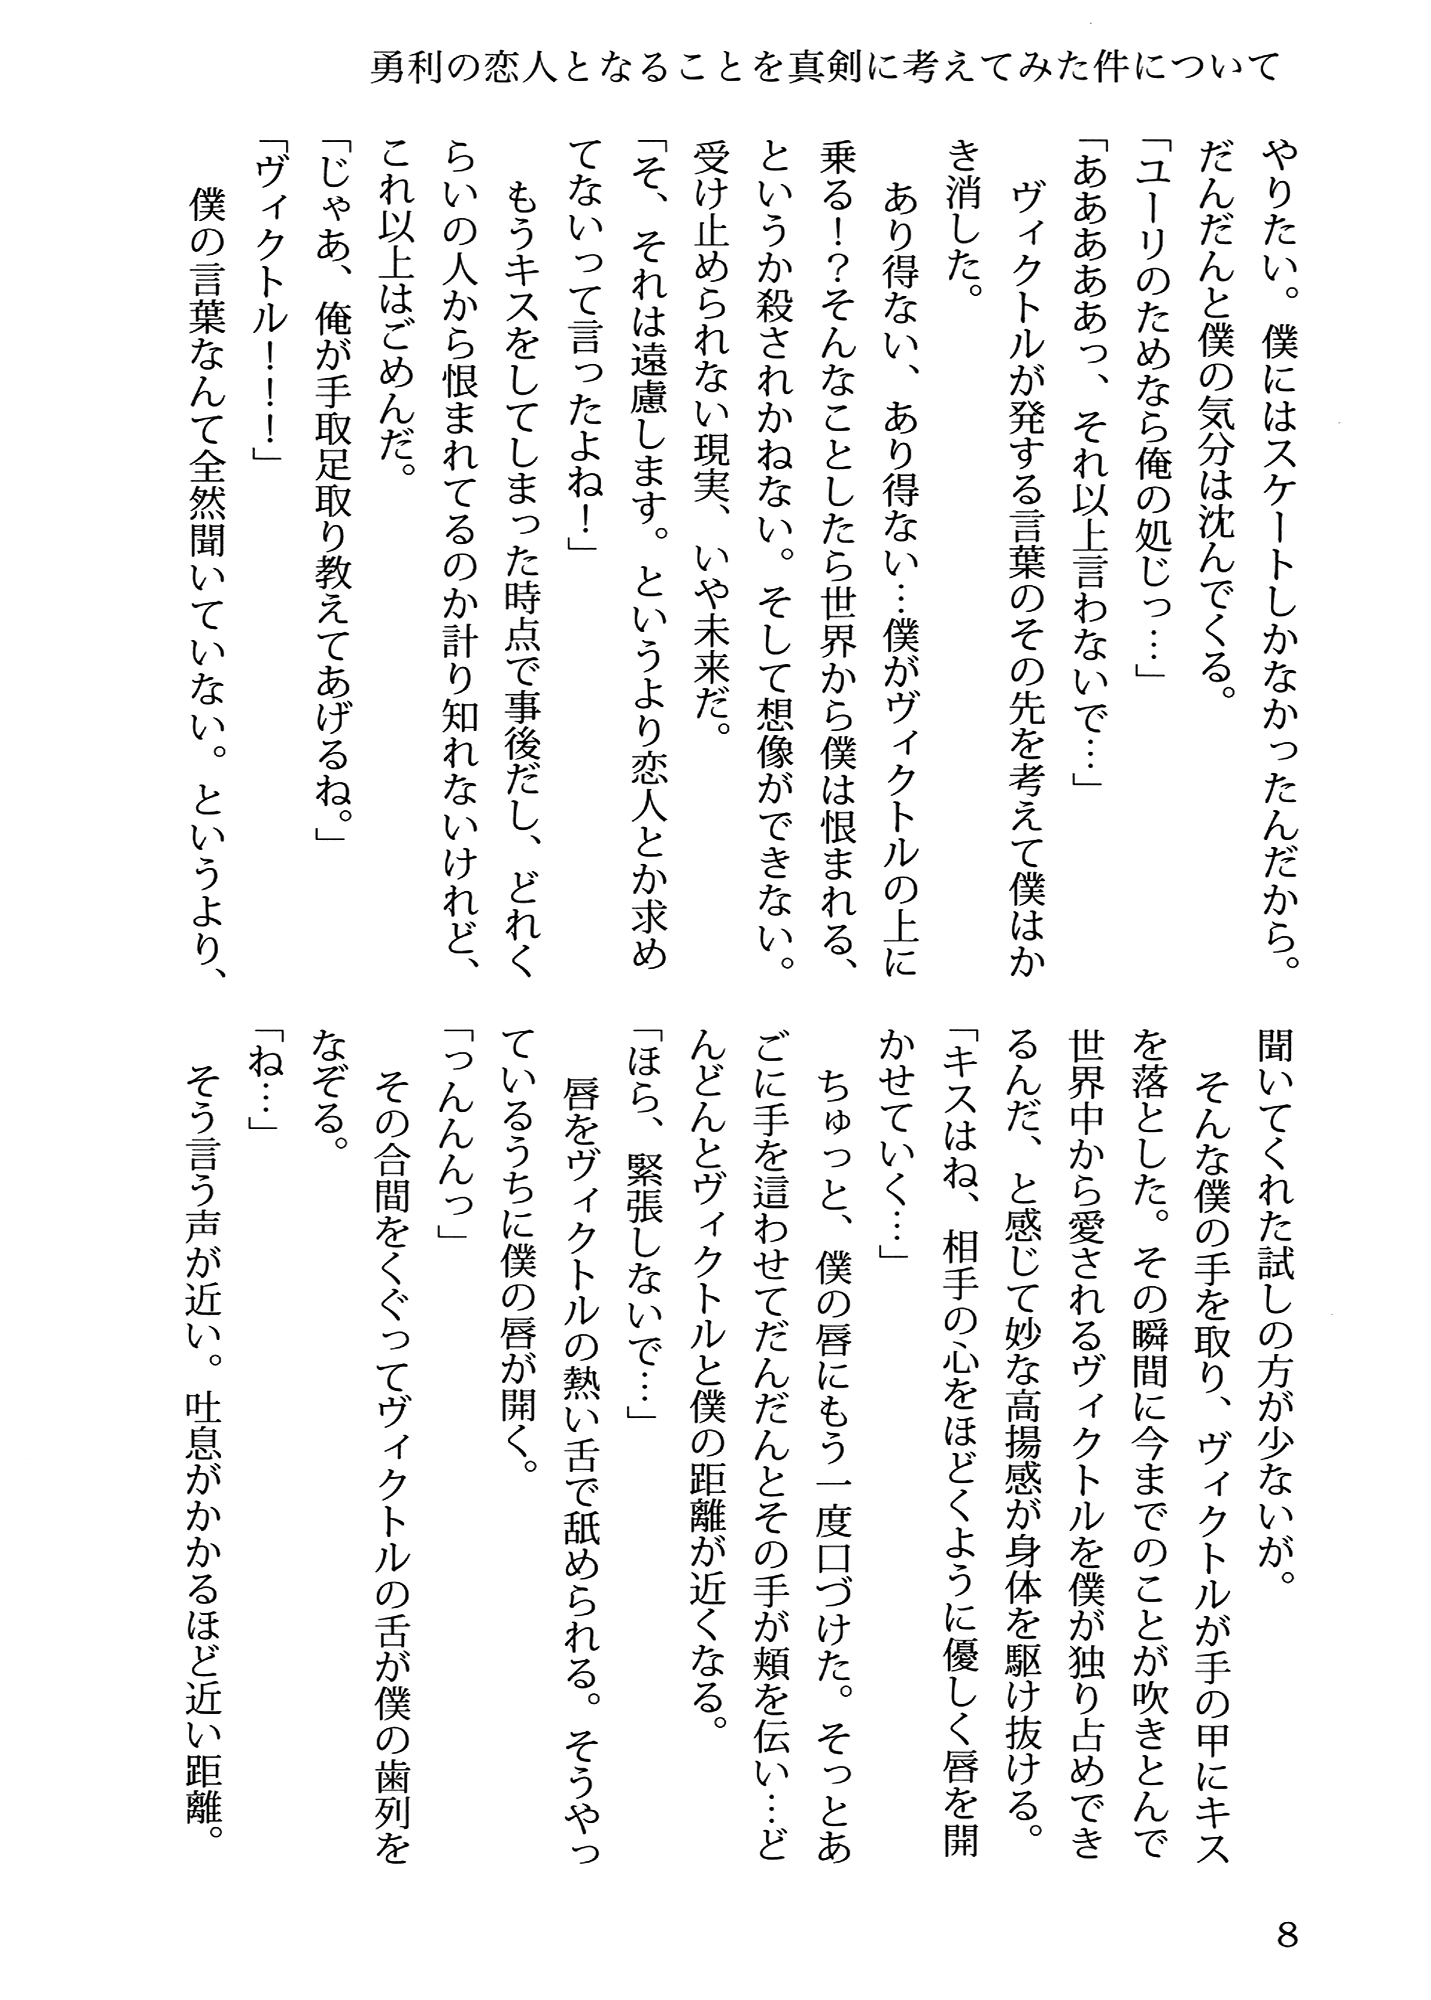 勇利の恋人となることを真剣に考えてみた件について
やりたい。僕にはスケートしかなかったんだから。
だんだんと僕の気分は沈んでくる。
「ユーリのためなら俺の処じっ…」
「あああああっ、それ以上言わないで…」
ヴィクトルが発する言葉のその先を考えて僕はか
き消した。
あり得ない、あり得ない…僕がヴィクトルの上に
乗る！？そんなことしたら世界から僕は恨まれる、
というか殺されかねない。そして想像ができない。
受け止められない現実、いや未来だ。
「そ、それは遠慮します。というより恋人とか求め
てないって言ったよね！」
もうキスをしてしまった時点で事後だし、どれく
らいの人から恨まれてるのか計り知れないけれど、
これ以上はごめんだ。
「じゃあ、俺が手取足取り教えてあげるね。」
「ヴィクトル！！！」
僕の言葉なんて全然聞いていない。というより、
聞いてくれた試しの方が少ないが。
そんな僕の手を取り、ヴィクトルが手の甲にキス
を落とした。その瞬間に今までのことが吹きとんで
世界中から愛されるヴィクトルを僕が独り占めでき
るんだ、と感じて妙な高揚感が身体を駆け抜ける。
「キスはね、相手の心をほどくように優しく唇を開
かせていく…」
ちゅっと、僕の唇にもう一度口づけた。そっとあ
ごに手を這わせてだんだんとその手が頬を伝い…ど
んどんとヴィクトルと僕の距離が近くなる。
「ほら、緊張しないで…」
唇をヴィクトルの熱い舌で舐められる。そうやっ
ているうちに僕の唇が開く。
「っんんんっ」
その合間をくぐってヴィクトルの舌が僕の歯列を
なぞる。
「ね…」
そう言う声が近い。吐息がかかるほど近い距離。
8